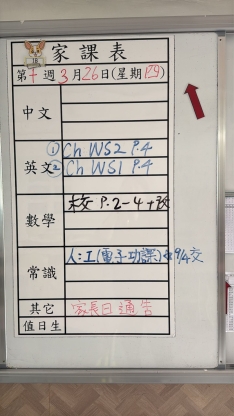 家課表
1B
第十週3月26日(星期四)
中文
英文
① Ch WS2 P.4
② Ch WS1 P.4
數學
校 P.2-4+改
常識
人:工(電子功課) 9/4交
其它
家長日通告
值日生